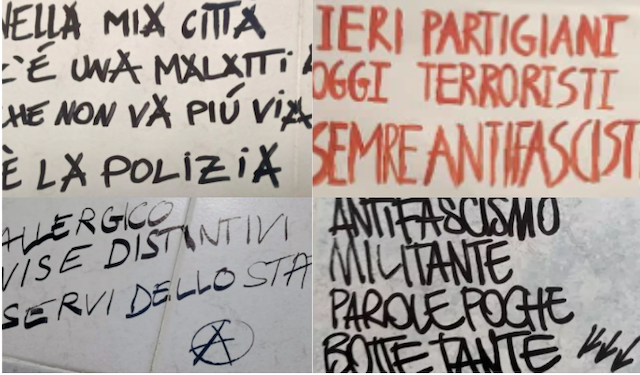 NELLA MIA CITTA
C'É UNA MALATTIA
CHE NON VA PIÚ VIA
È LA POLIZIA
IERI PARTIGIANI
OGGI TERRORISTI
SEMRE ANTIFASCIST
ALLERGICO
VISE DISTINTIVI
SERVI DELLO STA
ANTIFASCISMO
MILITANTE
PAROLE POCHE
BOTTE TANTE